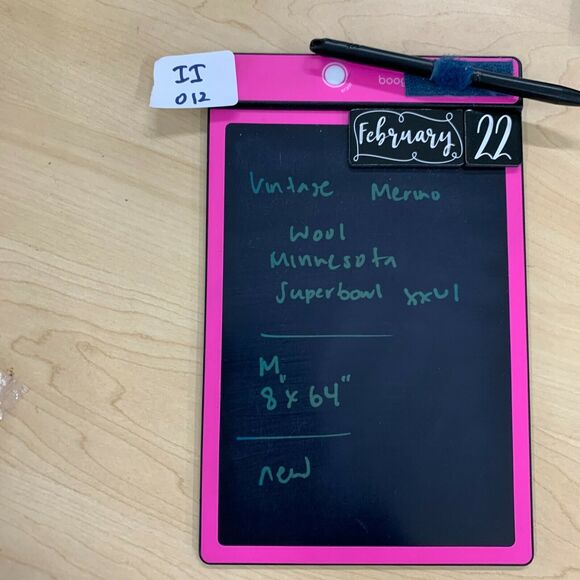 II
012
boog
February
22
Vintage Merino
Wool
Minnesota
Superbowl xxvI
M
8" x 64"
new